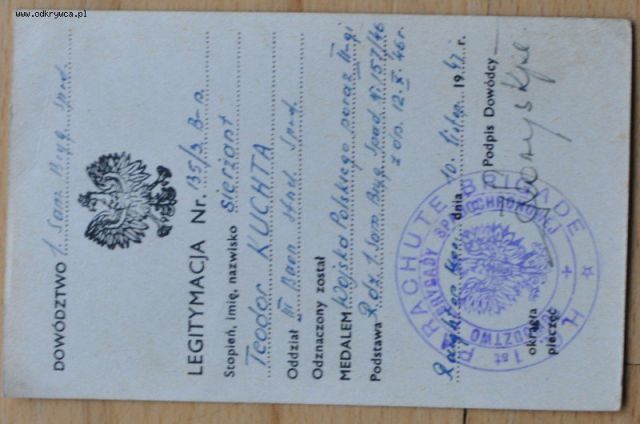 www.odkrywca.pl
DOWÓDZTWO 1. Sam. Bryg. Spad.
LEGITYMACJA Nr. 135/3 B-n.
Stopień, imię, nazwisko sierżant
Teodor KUCHTA
Oddział III Baon Strz. Spad.
Odznaczony został
MEDALEM Wojska Polskiego poraz II-gi
Podstawa Rozk. 1 Sam. Bryg. Spad. Nr 157/46
z dn. 12. X. 46 r.
dnia 10. 1947. r.
Podpis Dowódcy
okrągła
pieczęć
1st PARACHUTE BRIGADE H.Q.
DOWÓDZTWO 1 BRYGADY SPADOCHRONOWEJ